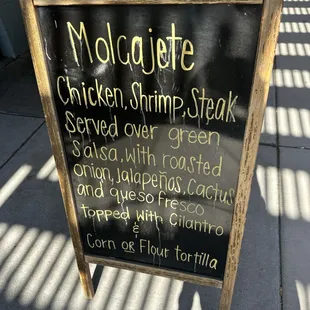 Molcajete
Chicken, Shrimp, Steak
Served over green
Salsa, with roasted
onion, Jalapeñas, Cactus
and queso fresco
topped with Cilantro
&
Corn OR Flour tortilla